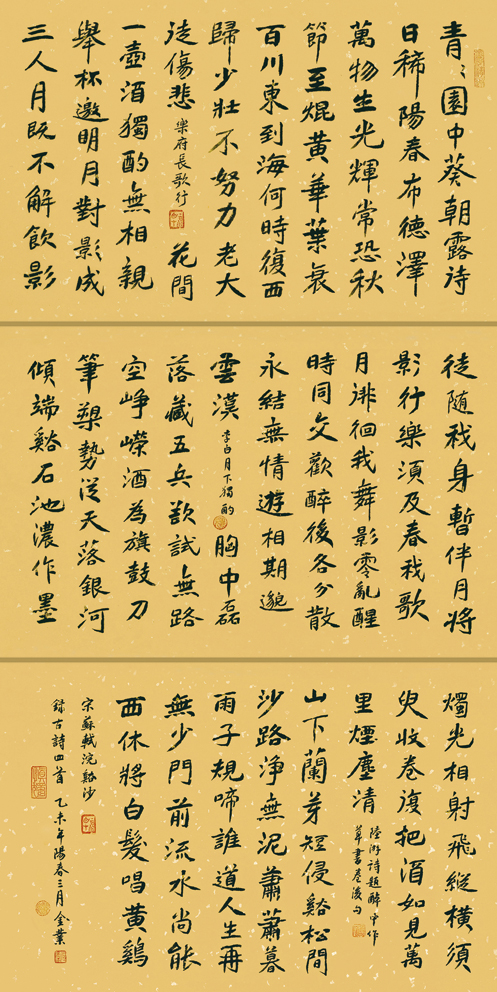 青々園中葵朝露待
日稀陽春布德澤
萬物生光輝常恐秋
節至焜黄華葉衰
百川東到海何時復西
歸少壯不努力老大
徒傷悲 樂府長歌行 花間
一壺酒獨酌無相親
舉杯邀明月對影成
三人月既不解飲影
徒隨我身暫伴月將
影行樂須及春我歌
月徘徊我舞影零亂醒
時同交歡醉後各分散
永結無情遊相期邈
雲漢 李白月下獨酌 胸中磊
落藏五兵欲試無路
空崢嶸酒為旗鼓刀
筆槊勢從天落銀河
傾端谿石池濃作墨
燭光相射飛縱橫須
臾收卷復把酒如見萬
里煙塵清
陸游詩題醉中作
草書卷後句
山下蘭芽短侵谿松間
沙路淨無泥蕭蕭暮
雨子規啼誰道人生再
無少門前流水尚能
西休將白髮唱黄鷄
宋蘇軾浣谿沙
録古詩四首 乙未年陽春三月金業